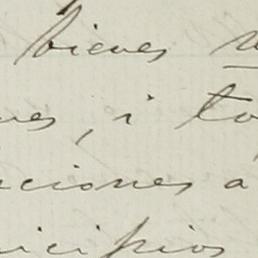 bienes
es, i to
ciones a
icipios